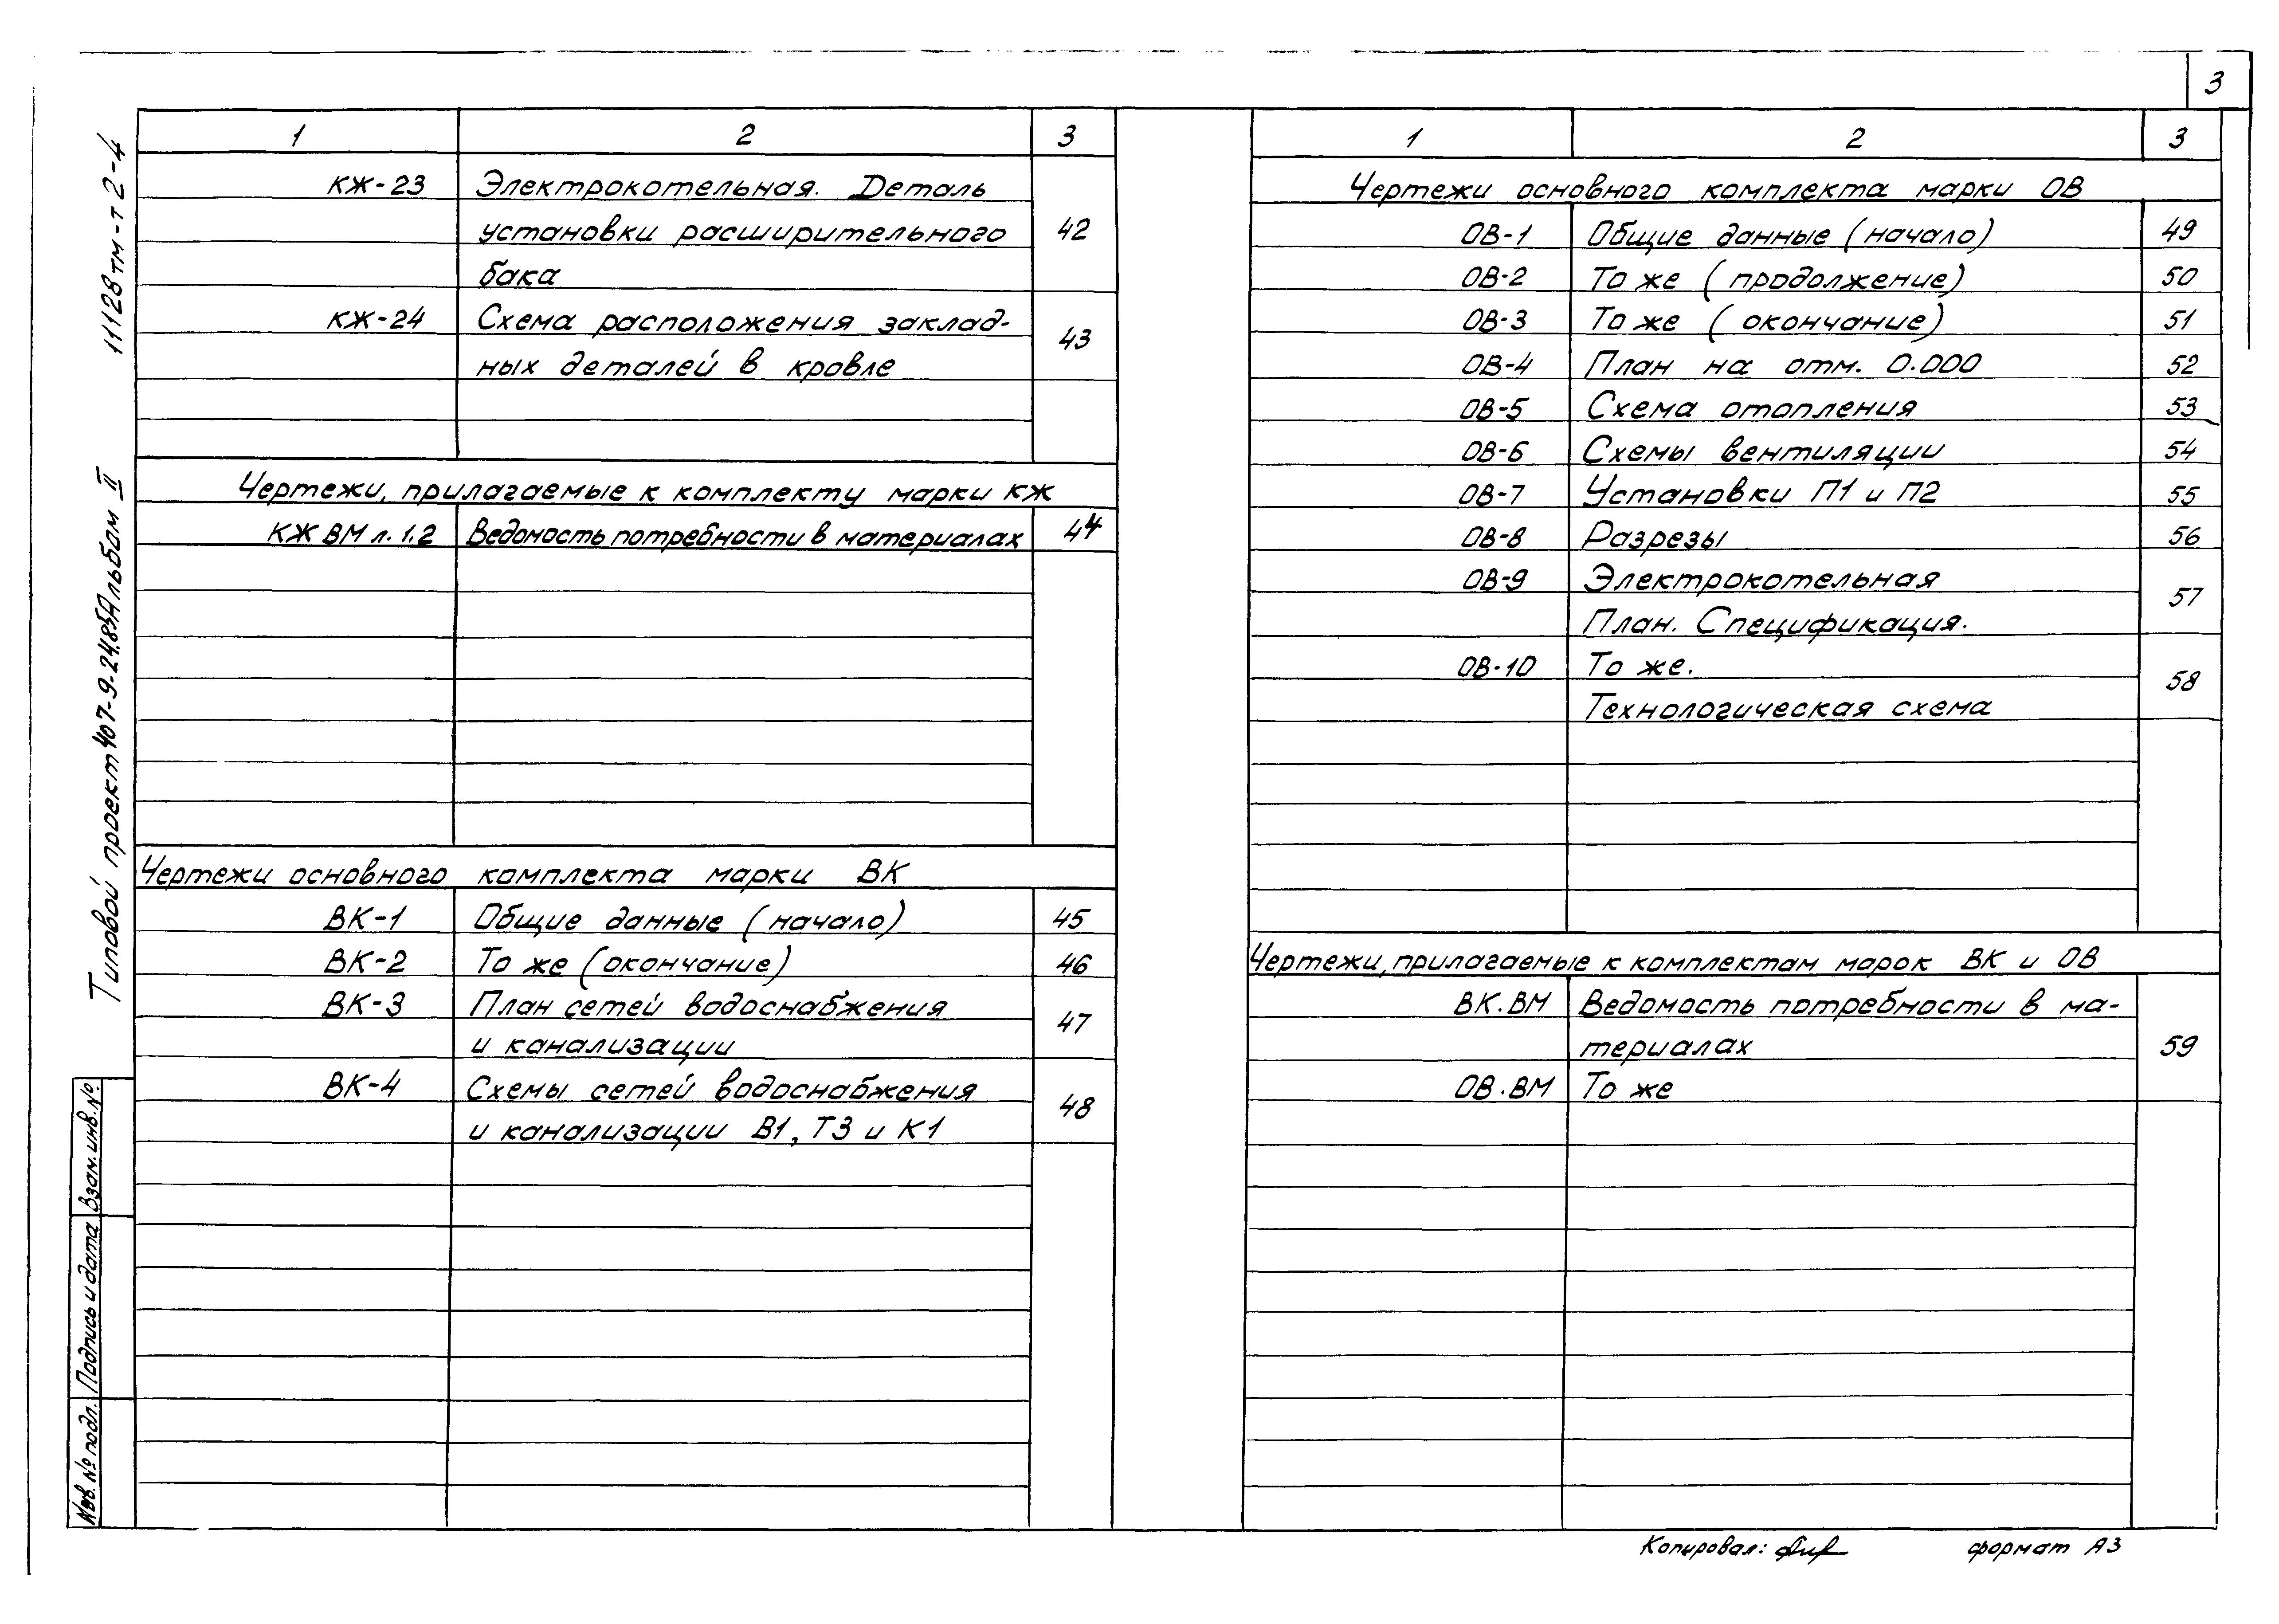 3
1 2 3
КЖ-23 Электрокотельная. Деталь
установки расширительного 42
бака
КЖ-24 Схема расположения заклад-
ных деталей в кровле 43
Чертежи, прилагаемые к комплекту марки КЖ
КЖ ВМ л. 1.2 Ведомость потребности в материалах 44
Чертежи основного комплекта марки ВК
ВК-1 Общие данные (начало) 45
ВК-2 То же (окончание) 46
ВК-3 План сетей водоснабжения
и канализации 47
ВК-4 Схемы сетей водоснабжения
и канализации В1, Т3 и К1 48
1 2 3
Чертежи основного комплекта марки ОВ
ОВ-1 Общие данные (начало) 49
ОВ-2 То же (продолжение) 50
ОВ-3 То же (окончание) 51
ОВ-4 План на отм. 0.000 52
ОВ-5 Схема отопления 53
ОВ-6 Схемы вентиляции 54
ОВ-7 Установки П1 и П2 55
ОВ-8 Разрезы 56
ОВ-9 Электрокотельная
План. Спецификация. 57
ОВ-10 То же.
Технологическая схема 58
Чертежи, прилагаемые к комплектам марок ВК и ОВ
ВК.ВМ Ведомость потребности в ма-
териалах 59
ОВ.ВМ То же
Типовой проект 407-9-24.85 Альбом II 11128тм-т2-4
Взам. инв. №
Подпись и дата
Инв. № подл.
Копировал: формат А3